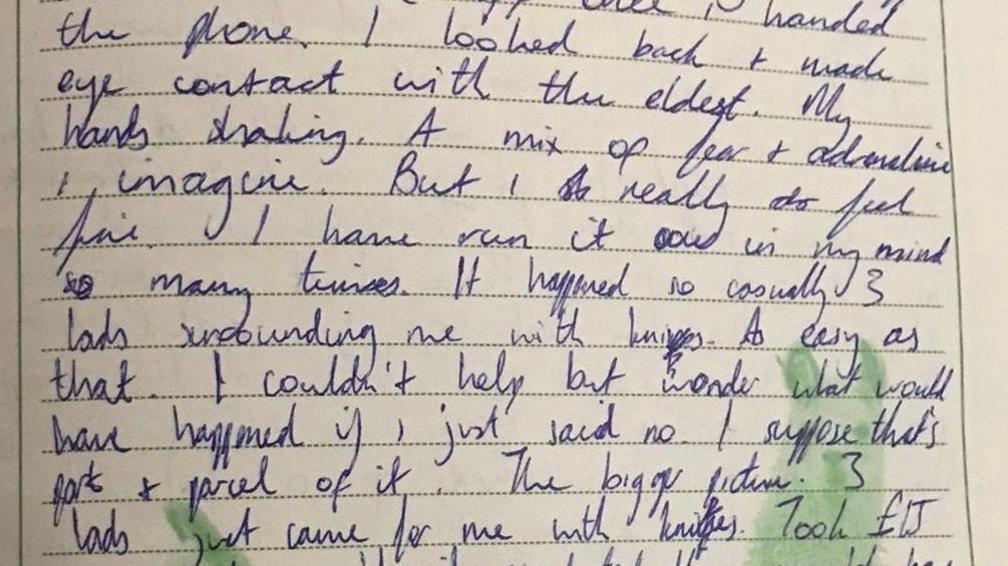 handed
the phone. I looked back + made
eye contact with the eldest. My
hands shaking. A mix of fear + adrenaline
I, imagine. But I really do feel
fine. I have run it over in my mind
so many times. It happened so casually 3
lads surrounding me with knives. As easy as
that. I couldn't help but wonder what would
have happened if I just said no. I suppose that's
part & parcel of it. The bigger picture. 3
lads just came for me with knifes. Took